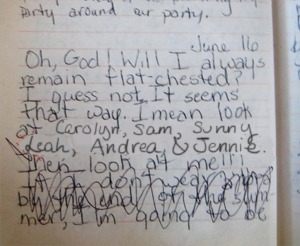 party around our party.
June 16
Oh, God! Will I always
remain flat-chested?
I guess not. It seems
that way. I mean look
at Carolyn, Sam, Sunny
Leah, Andrea, & Jennie.
Then look at me!!!
If I don't wear
by the end of the sum
mer, I'm going to be